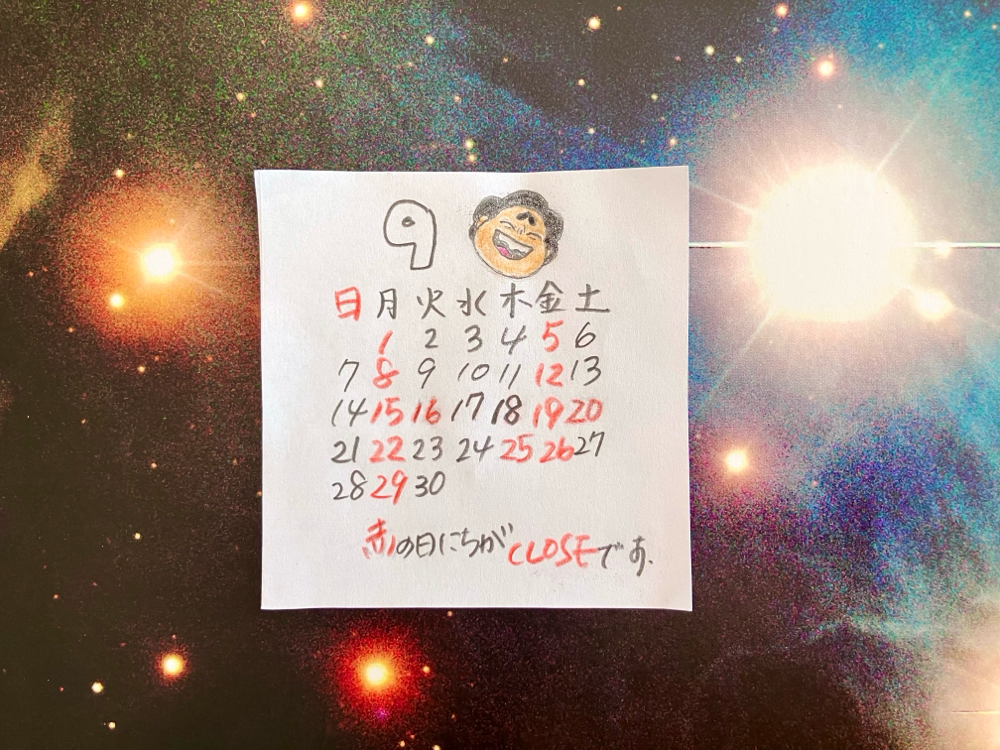 9
日 月 火 水 木 金 土
1 2 3 4 5 6
7 8 9 10 11 12 13
14 15 16 17 18 19 20
21 22 23 24 25 26 27
28 29 30
赤の日にちがCLOSEです.